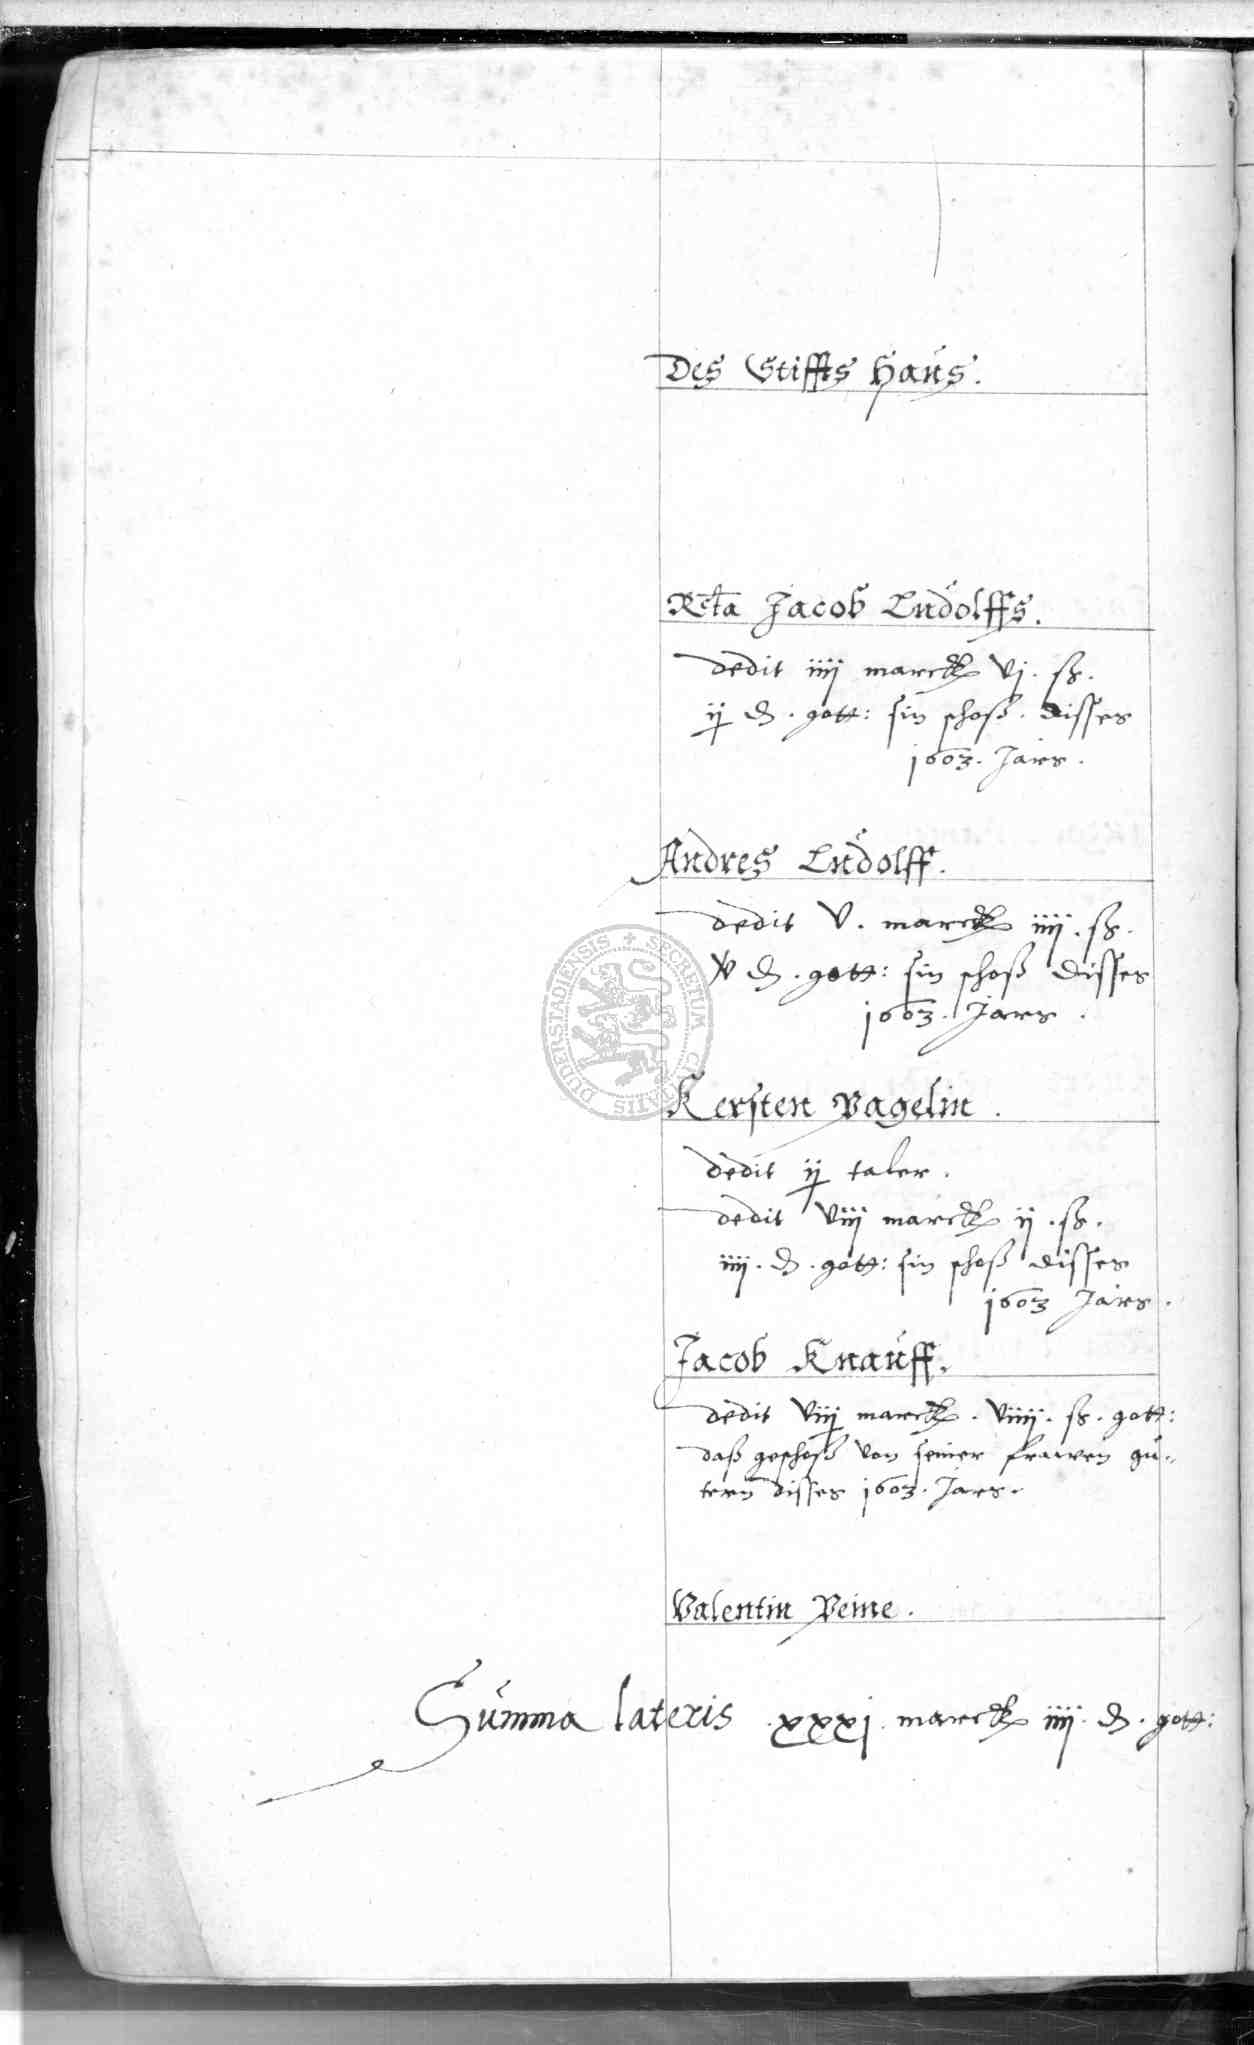 Des Stiffts Haus.
Rcta Jacob Ludolffs.
dedit iiij marck vj. ß.
ij ₰. gott: sin schoß. disses
1603. Jars.
Andres Ludolff.
dedit V. marck iiij. ß.
v ₰. gott: sin schoß disses
1603. Jars.
Kersten Pagelin.
dedit ij taler.
dedit viij marck ij. ß.
iiij. ₰. gott: sin schoß disses
1603 Jars.
Jacob Knauff.
dedit viij marck. viiij. ß. gott:
daß geschoß von seiner frawen gü-
tern disses 1603. Jars.
Valentin Peine.
Summa lateris xxxj. marck iiij. ₰. gott:
SECRETUM CIVITATIS DUDERSTADIENSIS